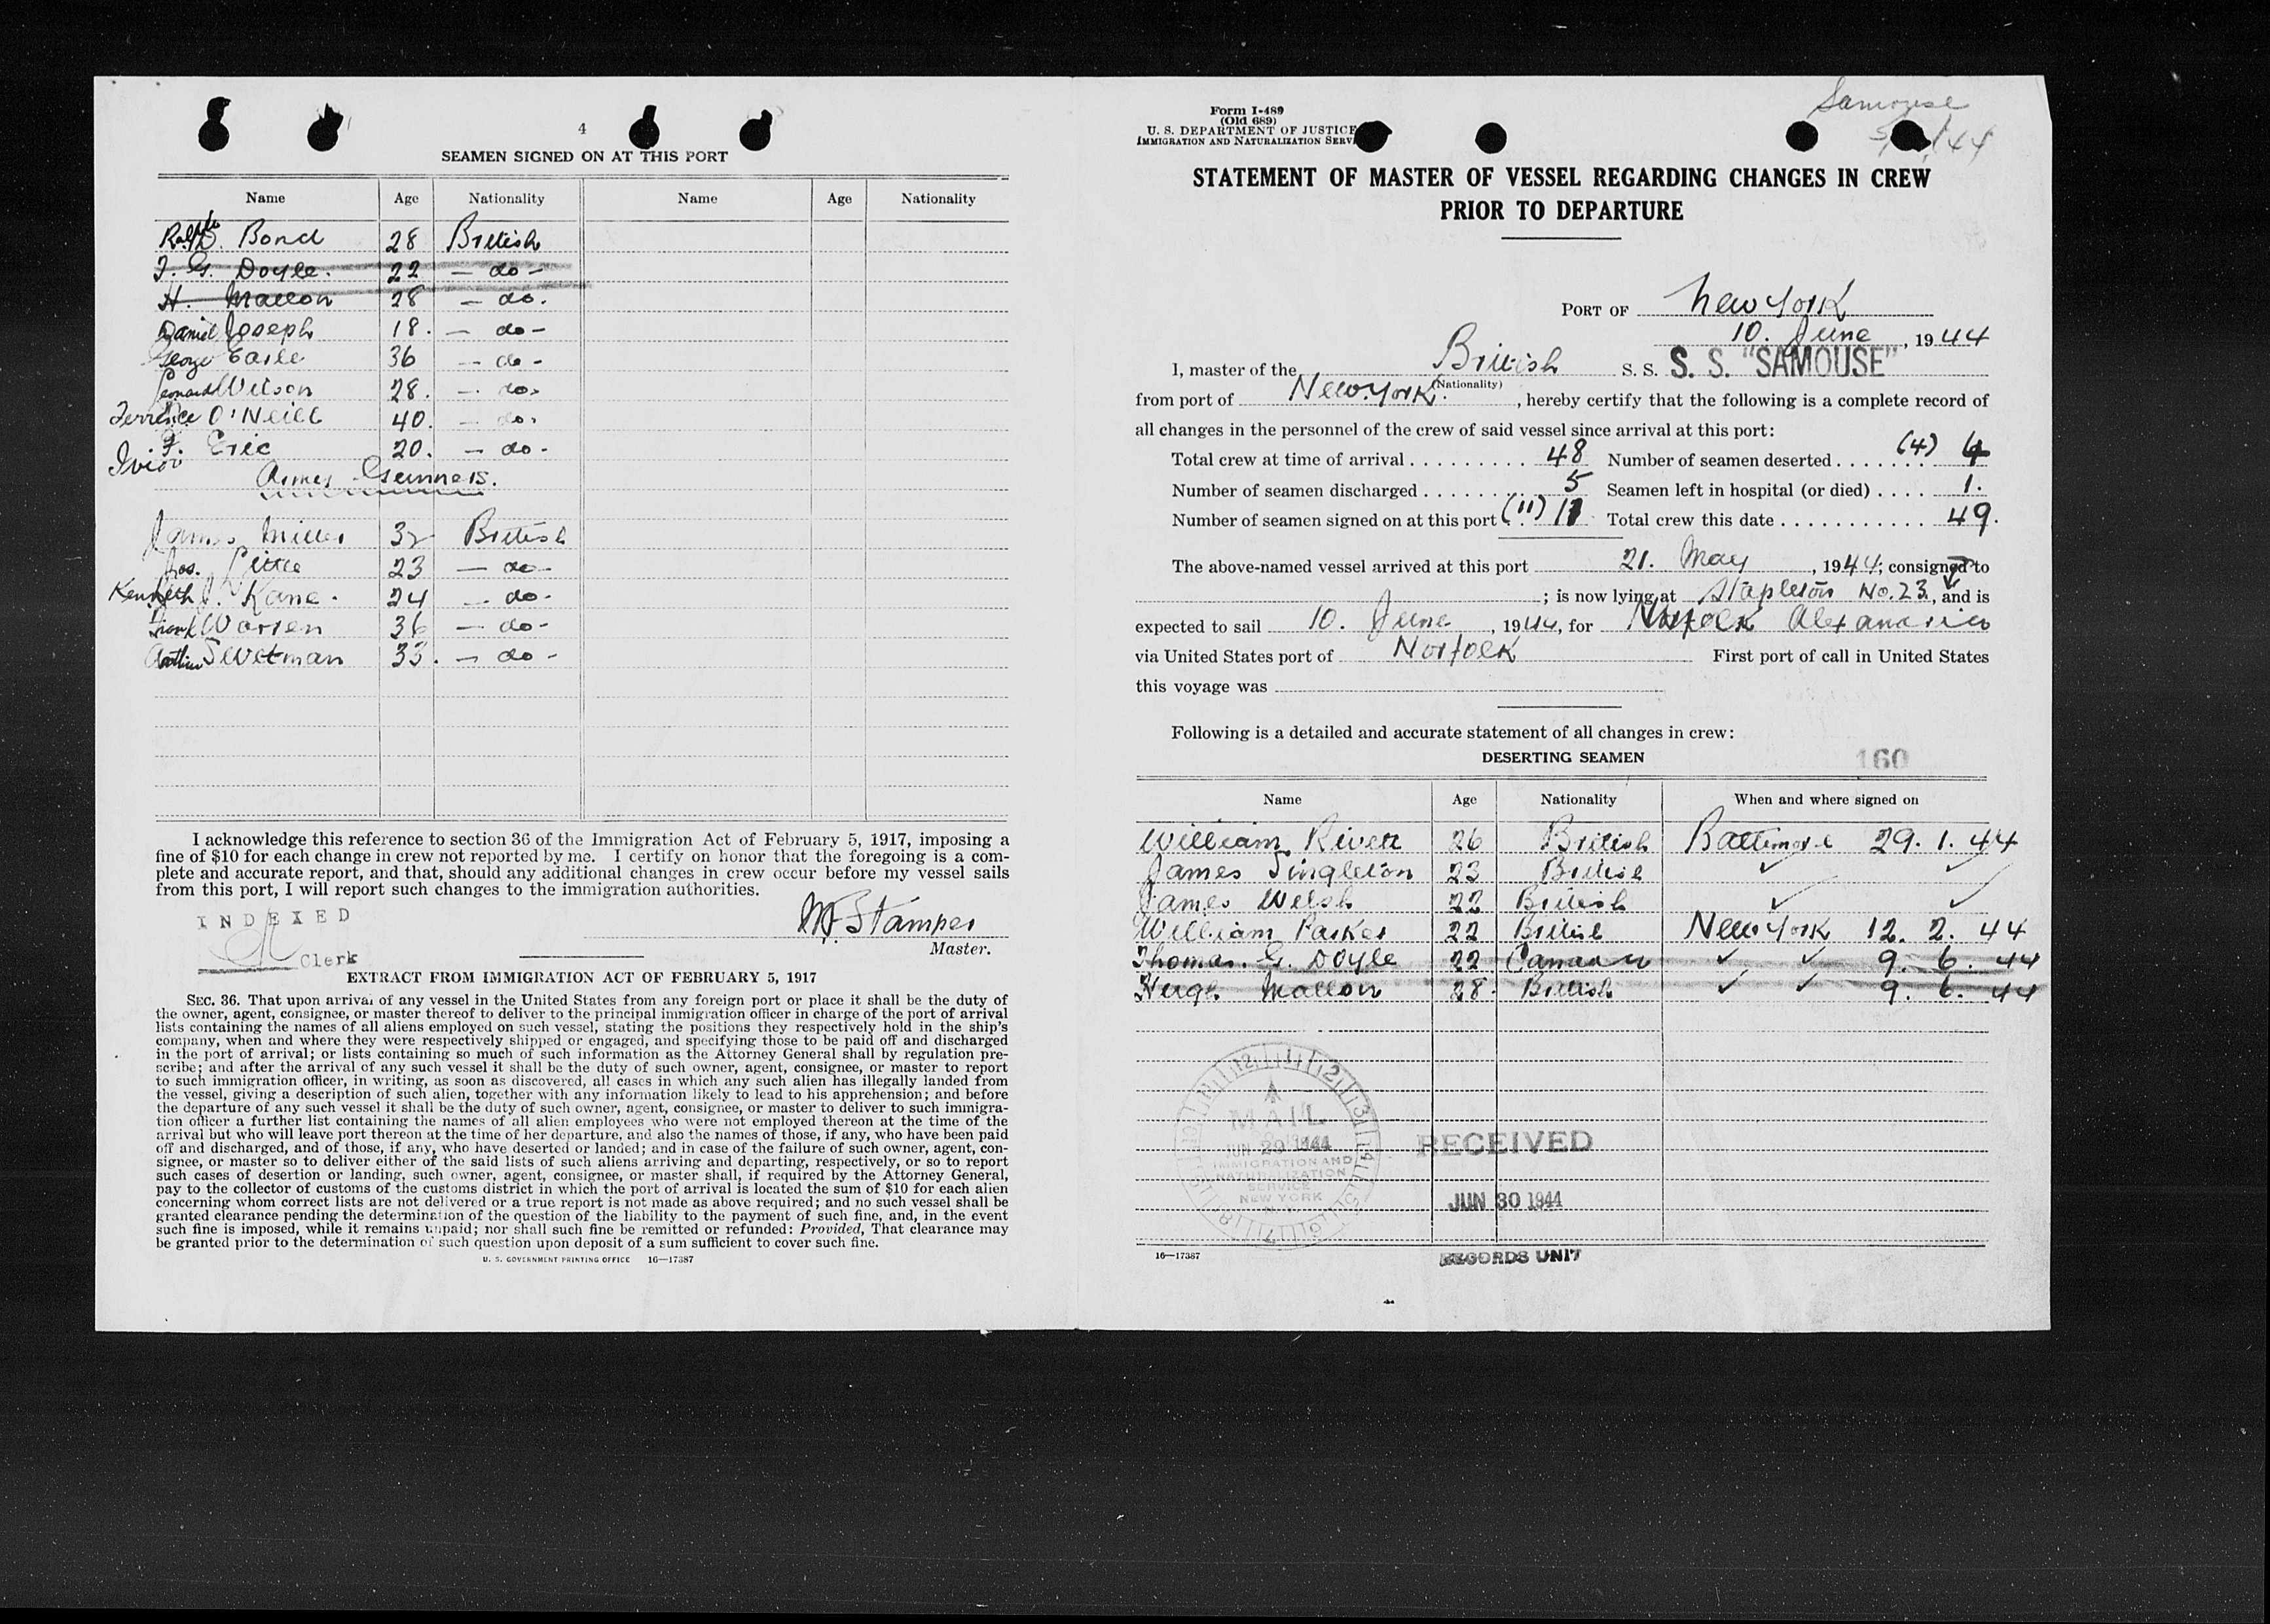 4
SEAMEN SIGNED ON AT THIS PORT
Name Age Nationality Name Age Nationality
Ralph D. Bond 28 British
T. G. Doyle. 22 — do -
H. Mallon 28 — do.
Daniel Joseph 18. — do -
George Earle 36 — do -
Leonard Wilson 28. — do.
Terrence O'Neill 40. — do.
F. Eric 20. — do -
Ivior
Army Gunners.
James Miller 32 British
Jos. Little 23 — do -
Kenneth J. Kane. 24 — do.
Frank Warren 36 — do -
Arthur Swetman 33. — do -
I acknowledge this reference to section 36 of the Immigration Act of February 5, 1917, imposing a
fine of $10 for each change in crew not reported by me. I certify on honor that the foregoing is a com-
plete and accurate report, and that, should any additional changes in crew occur before my vessel sails
from this port, I will report such changes to the immigration authorities.
INDEXED
Stamper
Master.
Clerk
EXTRACT FROM IMMIGRATION ACT OF FEBRUARY 5, 1917
SEC. 36. That upon arrival of any vessel in the United States from any foreign port or place it shall be the duty of
the owner, agent, consignee, or master thereof to deliver to the principal immigration officer in charge of the port of arrival
lists containing the names of all aliens employed on such vessel, stating the positions they respectively hold in the ship's
company, when and where they were respectively shipped or engaged, and specifying those to be paid off and discharged
in the port of arrival; or lists containing so much of such information as the Attorney General shall by regulation pre-
scribe; and after the arrival of any such vessel it shall be the duty of such owner, agent, consignee, or master to report
to such immigration officer, in writing, as soon as discovered, all cases in which any such alien has illegally landed from
the vessel, giving a description of such alien, together with any information likely to lead to his apprehension; and before
the departure of any such vessel it shall be the duty of such owner, agent, consignee, or master to deliver to such immigra-
tion officer a further list containing the names of all alien employees who were not employed thereon at the time of the
arrival but who will leave port thereon at the time of her departure, and also the names of those, if any, who have been paid
off and discharged, and of those, if any, who have deserted or landed; and in case of the failure of such owner, agent, con-
signee, or master so to deliver either of the said lists of such aliens arriving and departing, respectively, or so to report
such cases of desertion or landing, such owner, agent, consignee, or master shall, if required by the Attorney General,
pay to the collector of customs of the customs district in which the port of arrival is located the sum of $10 for each alien
concerning whom correct lists are not delivered or a true report is not made as above required; and no such vessel shall be
granted clearance pending the determination of the question of the liability to the payment of such fine, and, in the event
such fine is imposed, while it remains unpaid; nor shall such fine be remitted or refunded: Provided, That clearance may
be granted prior to the determination of such question upon deposit of a sum sufficient to cover such fine.
U. S. GOVERNMENT PRINTING OFFICE 16—17387
Samouse
44
Form I-489
(Old 689)
U. S. DEPARTMENT OF JUSTICE
IMMIGRATION AND NATURALIZATION SERV
STATEMENT OF MASTER OF VESSEL REGARDING CHANGES IN CREW
PRIOR TO DEPARTURE
PORT OF New York
10. June, 1944
I, master of the British S. S. S. S. "SAMOUSE"
(Nationality)
from port of New York., hereby certify that the following is a complete record of
all changes in the personnel of the crew of said vessel since arrival at this port:
Total crew at time of arrival 48 Number of seamen deserted (4) 4
Number of seamen discharged 5 Seamen left in hospital (or died) 1.
Number of seamen signed on at this port (11) 11 Total crew this date 49.
The above-named vessel arrived at this port 21. May, 1944; consigned to
; is now lying at Stapleton No. 23, and is
expected to sail 10. June, 1944, for Norfolk Alexandria
via United States port of Norfolk First port of call in United States
this voyage was
Following is a detailed and accurate statement of all changes in crew:
DESERTING SEAMEN 160
Name Age Nationality When and where signed on
William Rivett 26 British Baltimore 29. 1. 44
James Singleton 23 British ✓ ✓
James Welsh 22 British ✓ ✓
William Parker 22 British New York 12. 2. 44
Thomas. G. Doyle 22 Canadian ✓ ✓ 9. 6. 44
Hugh Mallon 28. British ✓ ✓ 9. 6. 44
MAIL
JUN 29 1944
IMMIGRATION AND
NATURALIZATION
SERVICE
NEW YORK
RECEIVED
JUN 30 1944
RECORDS UNIT
16—17387